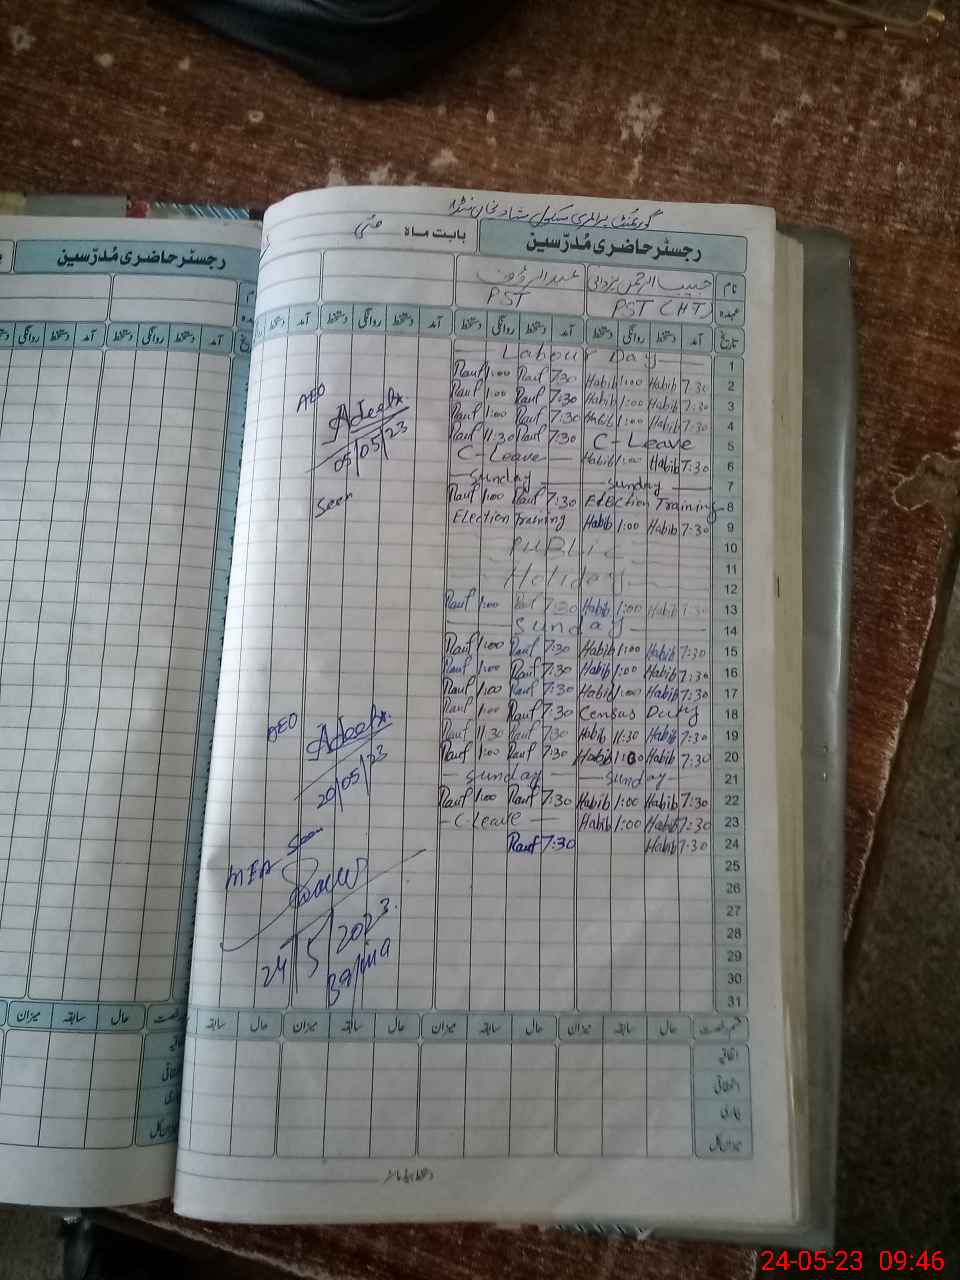 گورنمنٹ پرائمری سکول
رجسٹر حاضری مُدرّسین بابت ماہ مئی
نام حبیب الرحمن یزدانی عبدالرؤف
عہدہ PST (HT) PST
تاریخ آمد دستخط روانگی دستخط آمد دستخط روانگی دستخط آمد دستخط روانگی دستخط
— Labour Day — 1
Rauf 1:00 Rauf 7:30 Habib 1:00 Habib 7:30 2
Rauf 1:00 Rauf 7:30 Habib 1:00 Habib 7:30 3
Rauf 1:00 Rauf 7:30 Habib 1:00 Habib 7:30 4
Rauf 11:30 Rauf 7:30 C-Leave 5
C-Leave — Habib 1:00 Habib 7:30 6
— Sunday — Sunday — 7
Rauf 1:00 Rauf 7:30 Election Training 8
Election Training Habib 1:00 Habib 7:30 9
PUBLIC 10
11
Holiday 12
Rauf 1:00 Rauf 7:30 Habib 1:00 Habib 7:30 13
— Sunday — 14
Rauf 1:00 Rauf 7:30 Habib 1:00 Habib 7:30 15
Rauf 1:00 Rauf 7:30 Habib 1:00 Habib 7:30 16
Rauf 1:00 Rauf 7:30 Habib 1:00 Habib 7:30 17
Rauf 1:00 Rauf 7:30 Census Duty 18
Rauf 11:30 Rauf 7:30 Habib 11:30 Habib 7:30 19
Rauf 1:00 Rauf 7:30 Habib 1:00 Habib 7:30 20
— Sunday — Sunday — 21
Rauf 1:00 Rauf 7:30 Habib 1:00 Habib 7:30 22
— C-Leave — Habib 1:00 Habib 7:30 23
Rauf 7:30 Habib 7:30 24
25
26
27
28
29
30
31
AEO
Adeeba
05/05/23
Seen
AEO
Adeeba
20/05/23
Seen
MEA
24/5/2023.
قسم رخصت حال سابقہ میزان حال سابقہ میزان حال سابقہ
اتفاقیہ
استحقاقی
بیماری
میزان کل
رجسٹر حاضری مُدرّسین
آمد دستخط روانگی دستخط آمد دستخط روانگی
حال سابقہ میزان
24-05-23 09:46